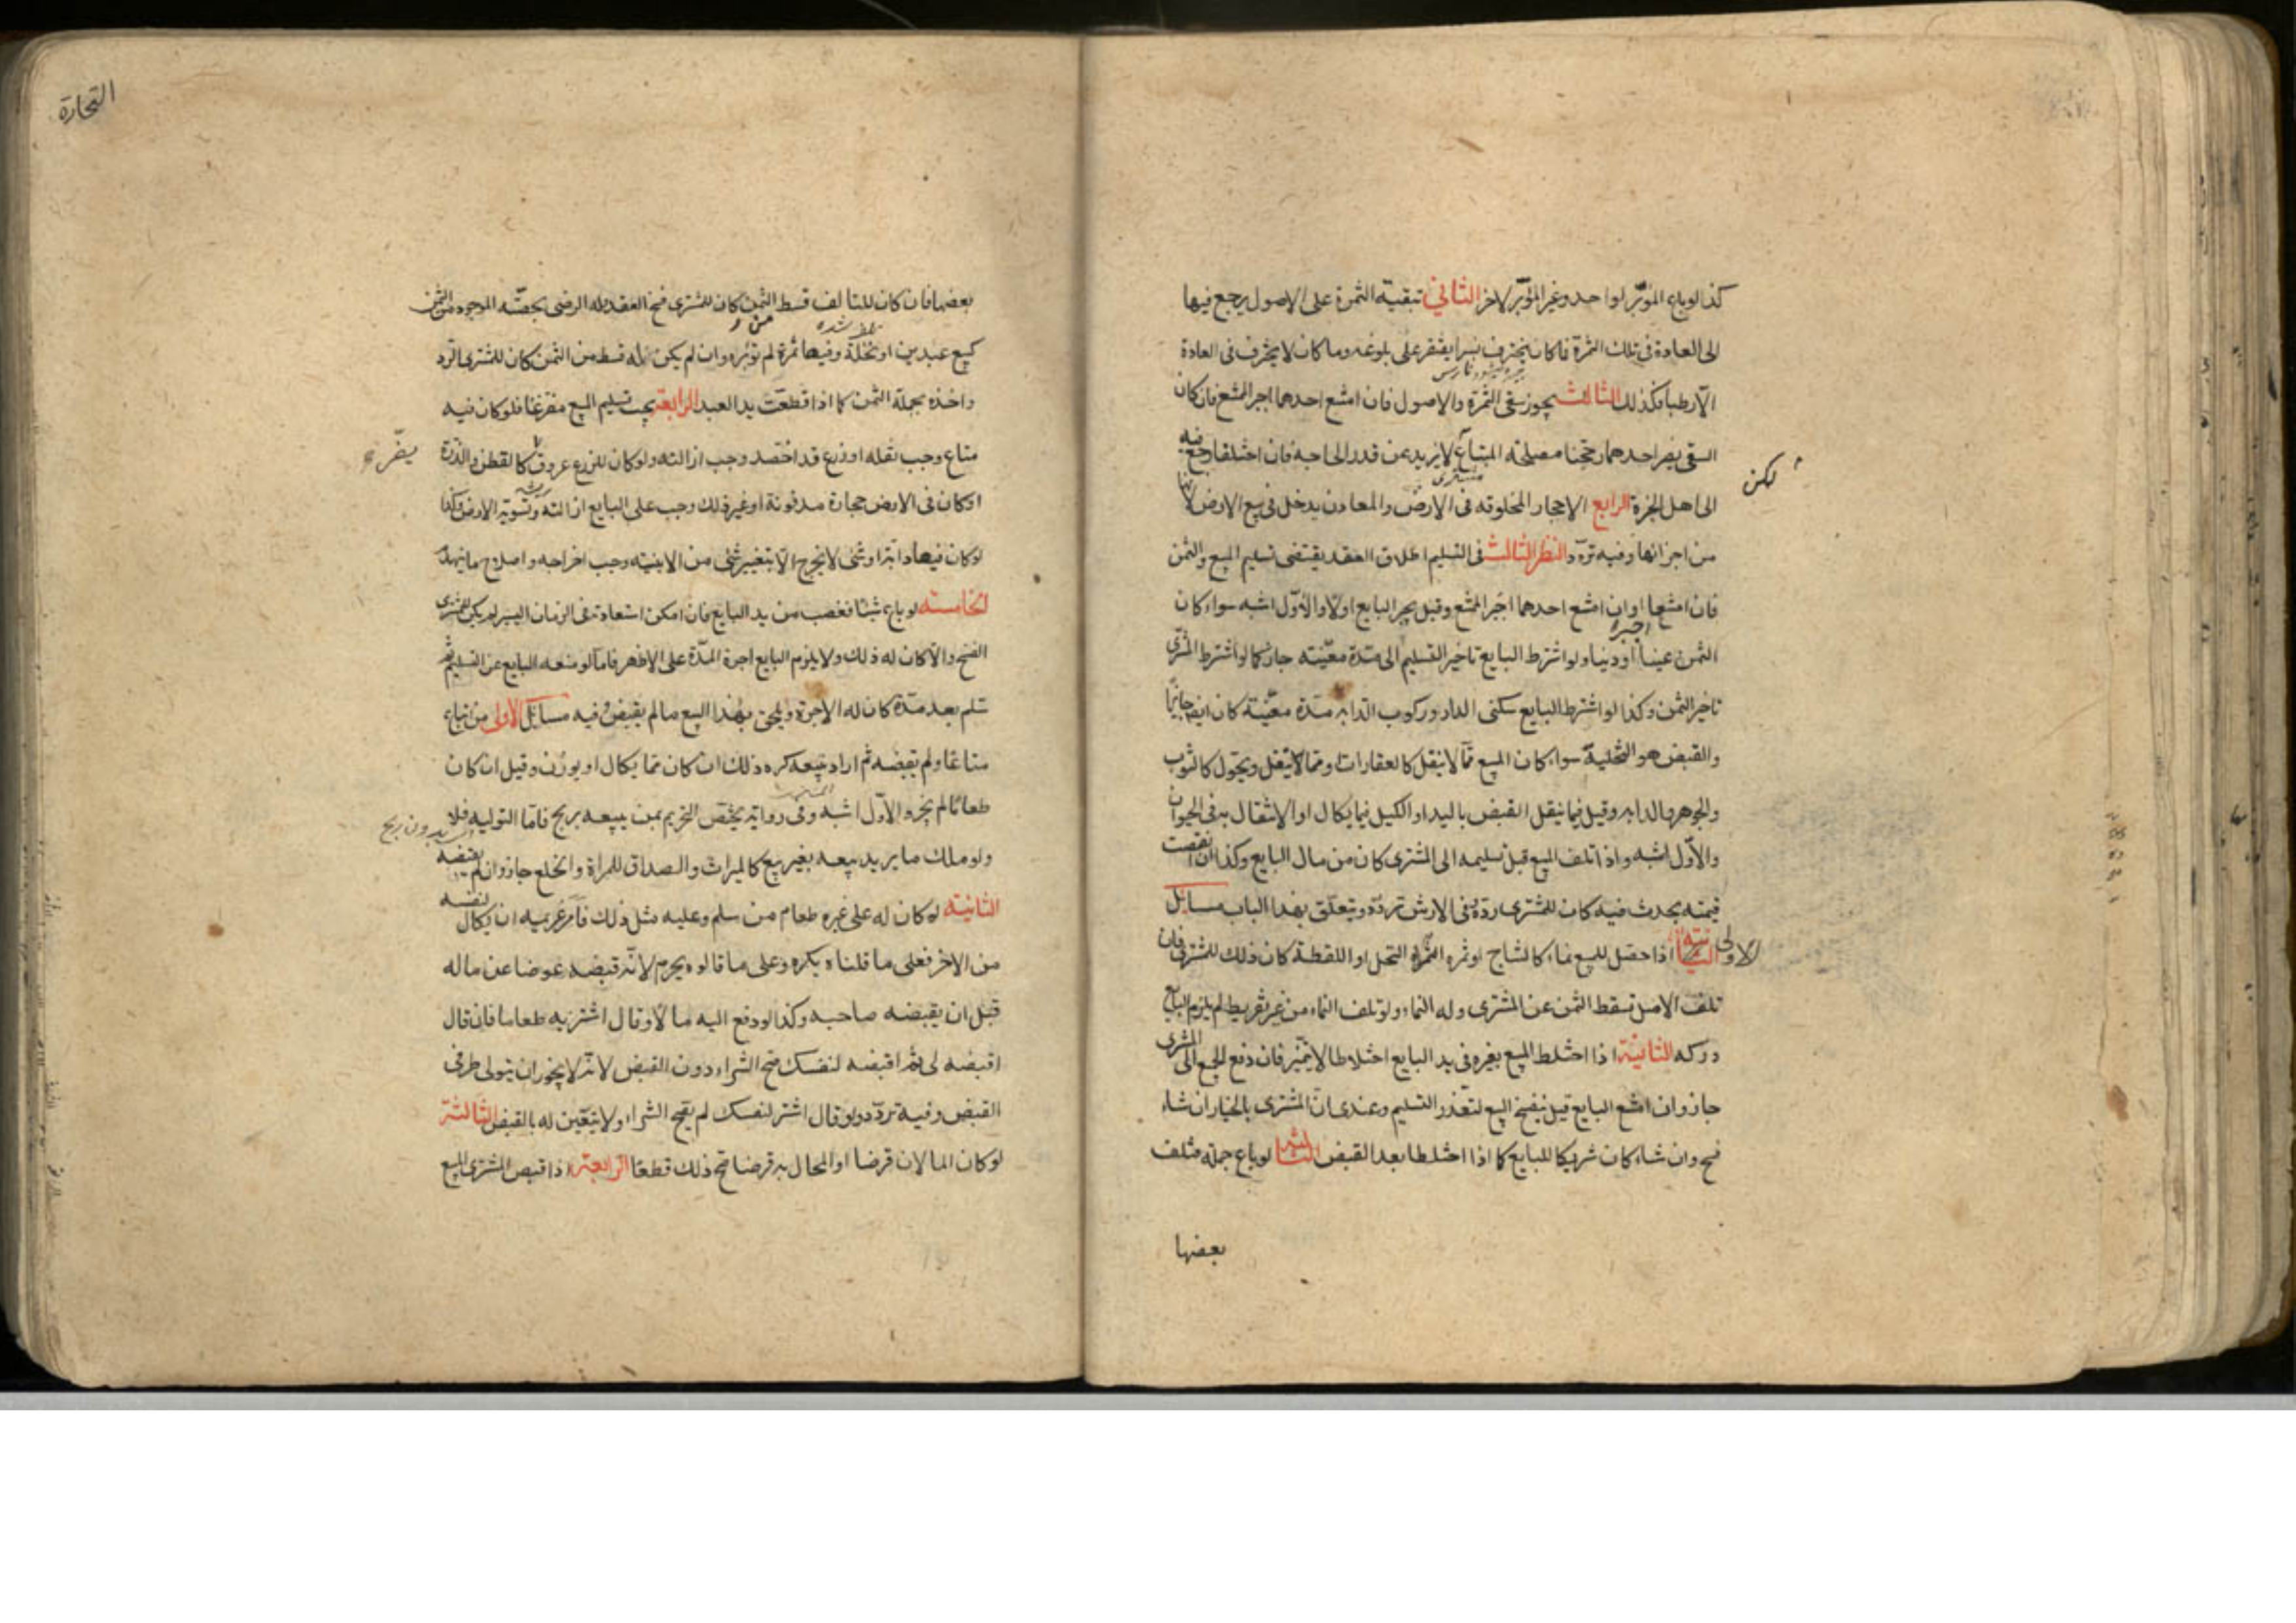 كذا لو باع المؤبّر لواحد وغير المؤبّر لاخر الثاني تبقية الثمرة على الاصول يرجع فيها
الى العادة في تلك الثمرة فما كان يخترف بسرا يقتصر على بلوغه وما كان لا يخترف في العادة
الا رطبا فكذلك الثالث يجوز سقى الثمرة والاصول فان امتنع احدهما اجبر الممتنع فان كان
السقى يضر احدهما رجحنا مصلحة المبتاع لا يزيد عن قدر الحاجة فان اختلفا رجع فيه
لكن
مشترى
الى اهل الخبرة الرابع الاحجار المخلوقه في الارض والمعادن يدخل في بيع الارض لانها
من اجزائها وفيه تردّد النظر الثالث في التسليم اطلاق العقد يقتضى تسليم المبيع والثمن
فان امتنعا او ان امتنع احدهما اجبر الممتنع وقيل يجبر البايع اولا والاوّل اشبه سواء كان
اجبرا
الثمن عينا او دينا ولو اشترط البايع تاخير التسليم الى مدة معيّنة جاز كما لو اشترط المشترى
تاخير الثمن وكذا لو اشترط البايع سكنى الدار وركوب الدابه مدّة معيّنة كان ايضا جايزا
والقبض هو التخلية سواء كان المبيع ممّا لا ينقل كالعقارات او مما ينقل ويحوّل كالثوب
والجوهر والدابه وقيل فيما ينقل القبض باليد او الكيل فيما يكال او الانتقال به في الحيوان
والاوّل اشبه واذا تلف المبيع قبل تسليمه الى المشترى كان من مال البايع وكذا ان نقصت
قيمته بحدث فيه كان للمشترى ردّه وفى الارش تردّد ويتعلّق بهذا الباب مسايل
الاولى اذا حصل للمبيع نماء كالنتاج او ثمره النخل او اللقطة كان ذلك للمشترى فان
تلف الاصل سقط الثمن عن المشترى وله النماء ولو تلف النماء من غير تفريط لم يلزم البايع
دركه الثانية اذا اختلط المبيع بغيره في يد البايع اختلاطا لا يتميّز فان دفع الجميع الى المشترى
جاز وان امتنع البايع قيل ينفسخ البيع لتعذر التسليم وعندى ان المشترى بالخيار ان شاء
فسخ وان شاء كان شريكا للبايع كما اذا اختلطا بعد القبض الثالثة لو باع جملة فتلف
بعضها
التجارة
بعضها فان كان للتالف قسط من الثمن كان للمشترى فسخ العقد وله الرضى بحصّة الموجود من الثمن
كبيع عبدين او نخلة وفيها ثمرة لم تؤبّر وان لم يكن له قسط من الثمن كان للمشترى الرد
واخذه بجملة الثمن كما اذا قطعت يد العبد الرابعة يجب تسليم المبيع مفرغا فلو كان فيه
متاع وجب نقله او زرع قد احصد وجب ازالته ولو كان للزرع عروق تضر كالقطن والذرة
او كان في الارض حجارة مدفونة او غير ذلك وجب على البايع ازالته وتسوية الارض وكذا
لو كان فيها دابة او شئ لا يخرج الّا بتغيير شئ من الابنية وجب اخراجه واصلاح ما يتهدّم
الخامسة لو باع شيئا فغصب من يد البايع فان امكن استعادته في الزمان اليسير لم يكن للمشترى
الفسخ والّا كان له ذلك ولا يلزم البايع اجرة المدّة على الاظهر فاما لو منعه البايع عن التسليم ثم
سلم بعد مدّة كان له الاجرة ويلحق بهذا البيع ما لم يقبض وفيه مسايل الاولى من ابتاع
متاعا ولم يقبضه ثم اراد بيعه كره ذلك ان كان مما يكال او يوزن وقيل ان كان
طعاما لم يجز والاوّل اشبه وفي رواية يختص التحريم بمن يبيعه بربح فامّا التوليه فلا
بدون ربح
ولو ملك ما يريد بيعه بغير بيع كالميراث والصداق للمراة والخلع جاز وان لم يقبضه
الثانية لو كان له على غيره طعام من سلم وعليه مثل ذلك فامر غريمه ان يكتال لنفسه
من الاخر فعلى ما قلناه يكره وعلى ما قالوه يحرم لانّه قبضه عوضا عن ماله
قبل ان يقبضه صاحبه وكذا لو دفع اليه مالا وقال اشتر به طعاما فان قال
اقبضه لى ثم اقبضه لنفسك صح الشراء دون القبض لانه لا يجوز ان يتولى طرفي
القبض وفيه تردّد ولو قال اشتر لنفسك لم يصح الشراء ولا يتعيّن له بالقبض الثالثة
لو كان المالان قرضا او المحال به قرضا صح ذلك قطعا الرابعة اذا قبض المشترى المبيع